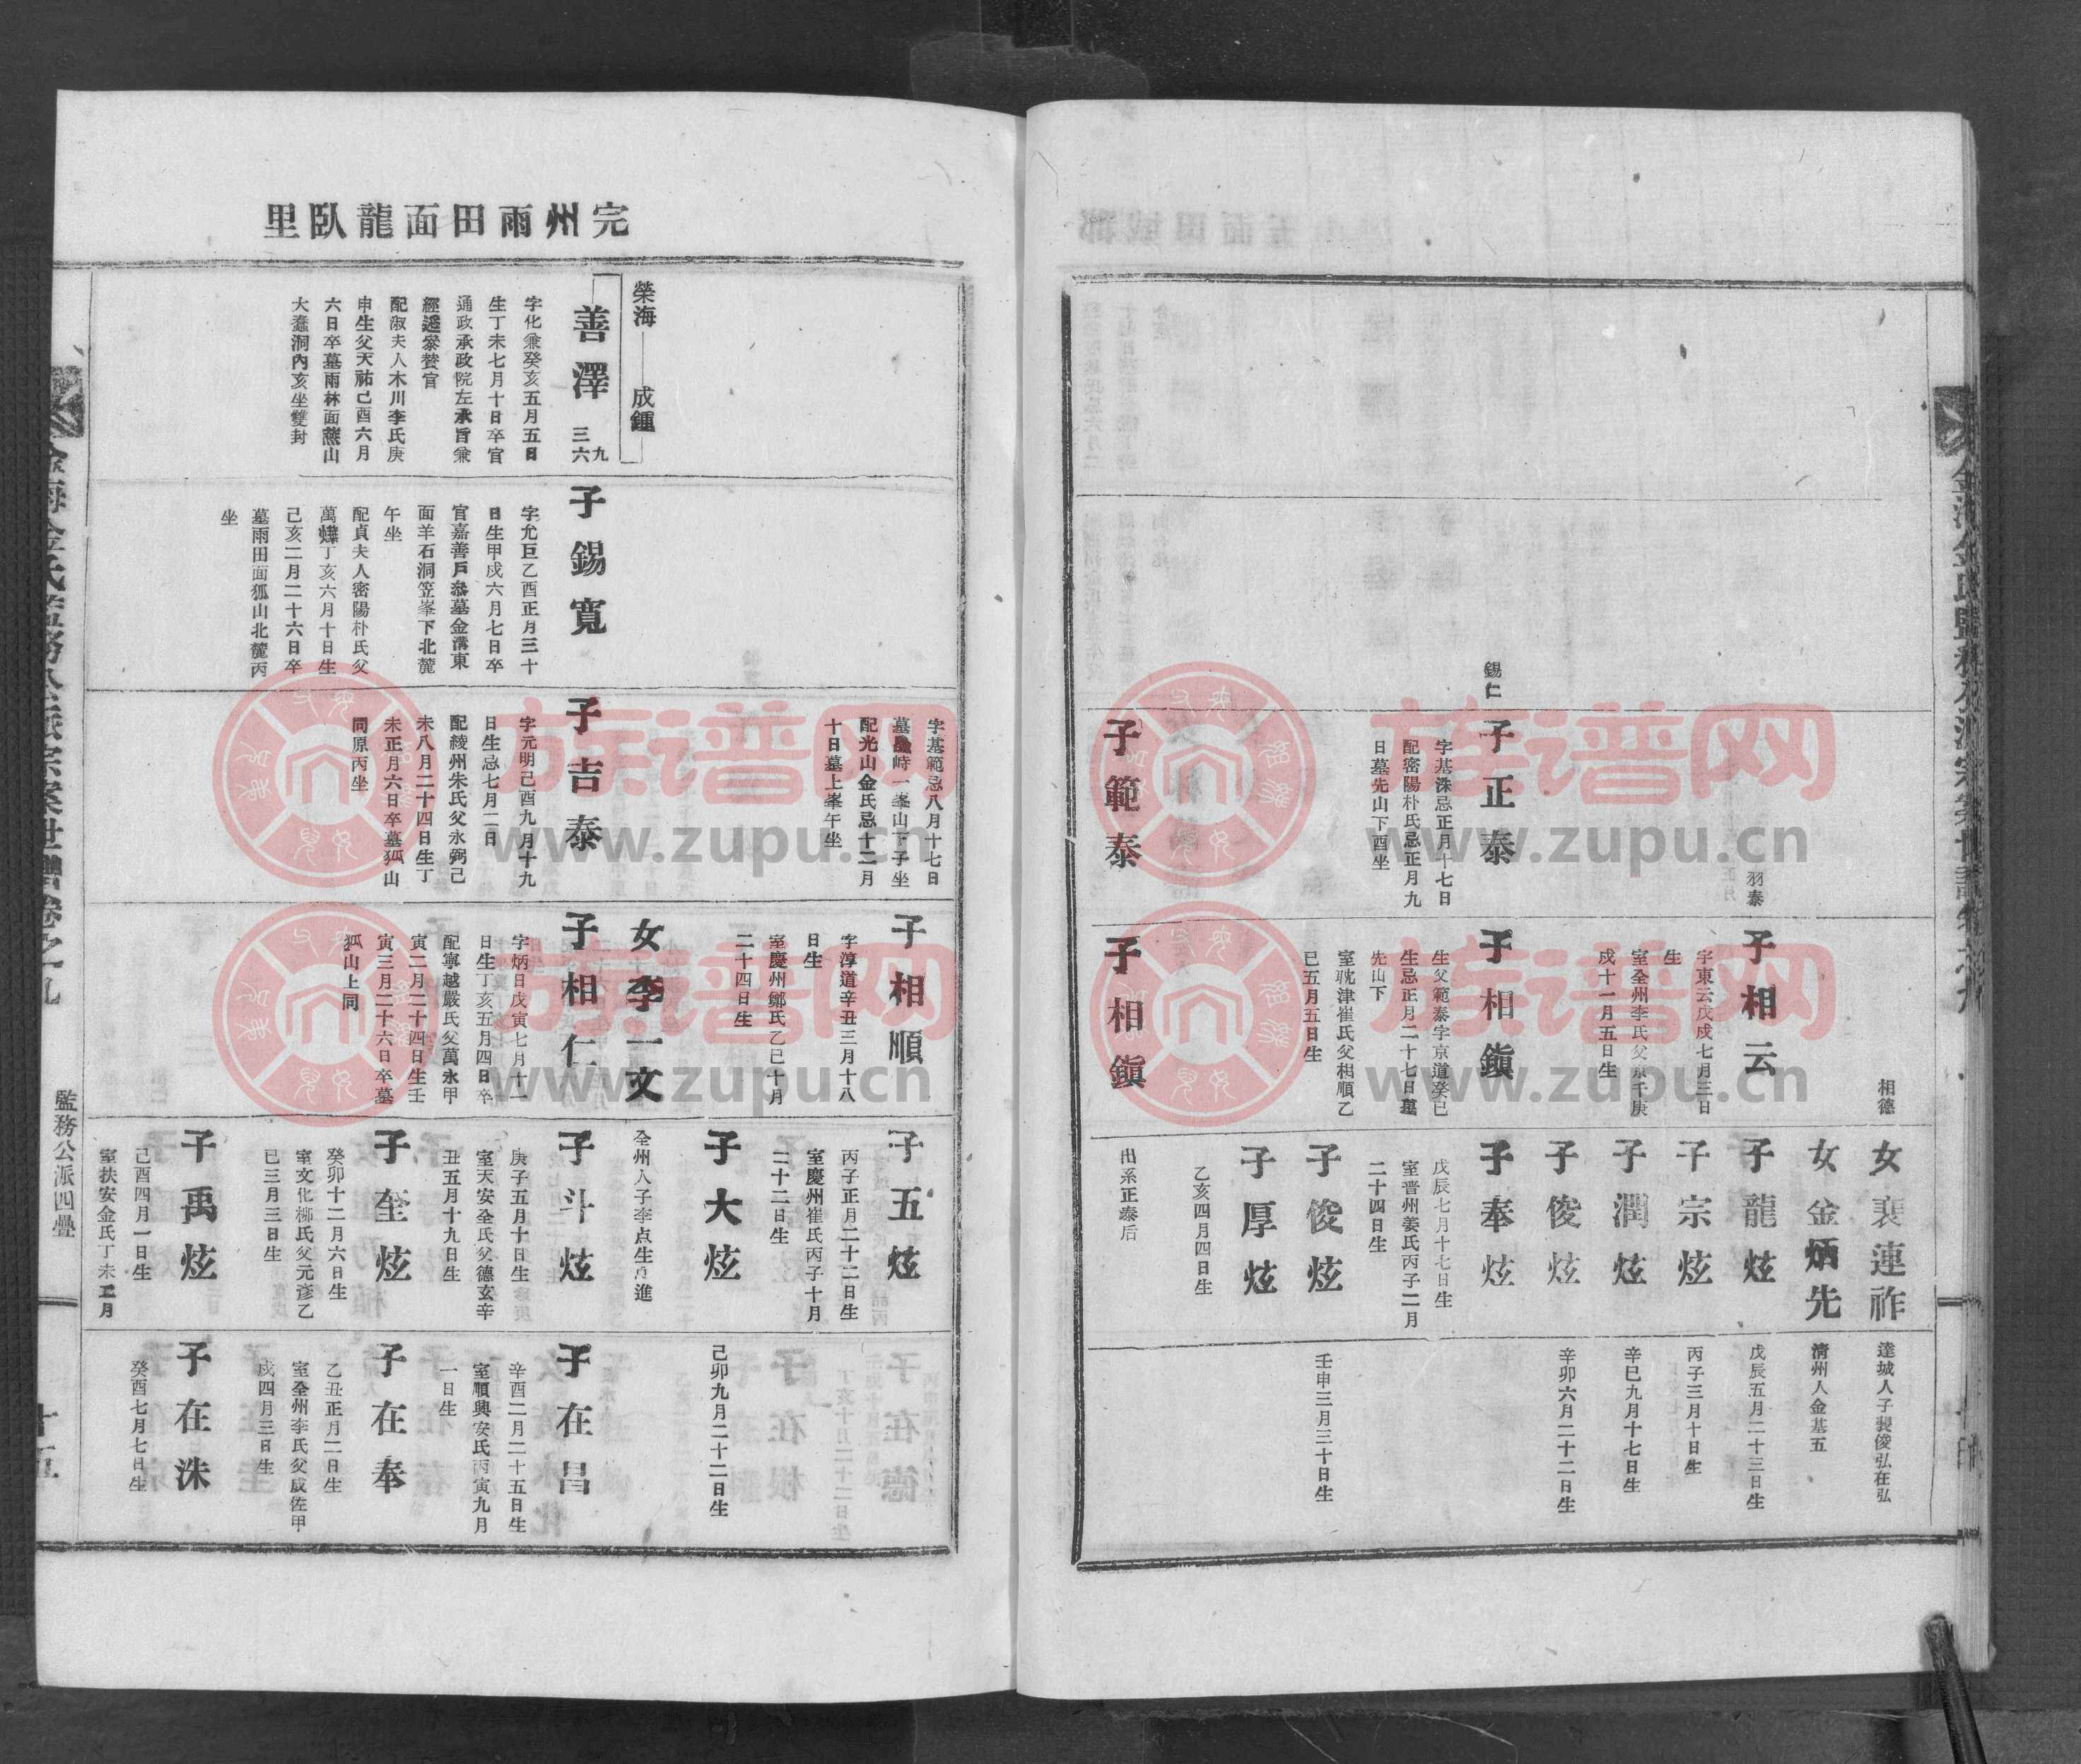 錫仁
子正泰
字基洙忌正月十七日
配密陽朴氏忌正月九
日墓先山下酉坐
子範泰
羽泰
子相云
字東云戊戌七月三日
生
室全州李氏父京千庚
戌十一月五日生
子相鎭
生父範泰字京道癸巳
生忌正月二十七日墓
先山下
室耽津崔氏父相順乙
巳五月五日生
子相鎭
相德
女裵連祚
女金炳先
子龍炫
子宗炫
子潤炫
子俊炫
子奉炫
戊辰七月十七日生
室晋州姜氏丙子二月
二十四日生
子俊炫
子厚炫
乙亥四月四日生
出系正泰后
達城人子裴俊弘在弘
清州人金基五
戊辰五月二十三日生
丙子三月十日生
辛巳九月十七日生
辛卯六月二十二日生
壬申三月三十日生
完州雨田面龍臥里
榮海
成鍾
善澤
三六九
字化兼癸亥五月五日
生丁未七月十日卒官
通政承政院左承旨兼
經遙參贊官
配淑夫人木川李氏庚
申生父天祐己酉六月
六日卒墓雨林面蓀山
大蠢洞內亥坐雙封
子錫寬
字允巨乙酉正月三十
日生甲戌六月七日卒
官嘉善戶叅墓金溝東
面羊石洞笠峯下北麓
午坐
配貞夫人密陽朴氏父
萬燁丁亥六月十日生
己亥二月二十六日卒
墓雨田面狐山北麓丙
坐
字基範忌八月十七日
峙一峯山下子坐
配光山金氏忌十二月
十日墓上峯午坐
子吉泰
字元明己酉九月十九
日生忌七月二日
配綾州朱氏父永弼己
未八月二十四日生丁
未正月六日卒墓狐山
同原丙坐
子相順
字淳道辛丑三月十八
日生
室慶州鄭氏乙巳十月
二十四日生
女李一文
子相仁
字炳日戊寅七月十一
日生丁亥五月四日卒
配寧越嚴氏父萬永甲
寅二月二十四日生壬
寅三月二十六日卒墓
狐山上同
子五炫
丙子正月二十二日生
室慶州崔氏丙子十月
二十二日生
子大炫
全州人子李点生
進
子斗炫
庚子五月十日生
室天安全氏父德玄辛
丑五月十九日生
子奎炫
癸卯十二月六日生
室文化柳氏父元彥乙
巳三月三日生
子禹炫
己酉四月一日生
室扶安金氏丁未二月
己卯九月二十二日生
子在昌
辛酉二月二十五日生
室順興安氏丙寅九月
一日生
子在奉
乙丑正月二日生
室全州李氏父成佐甲
戌四月三日生
子在洙
癸酉七月七日生
監務公派四疊
十五
族谱网
www.zupu.cn
族谱网
www.zupu.cn
族谱网
www.zupu.cn
族谱网
www.zupu.cn